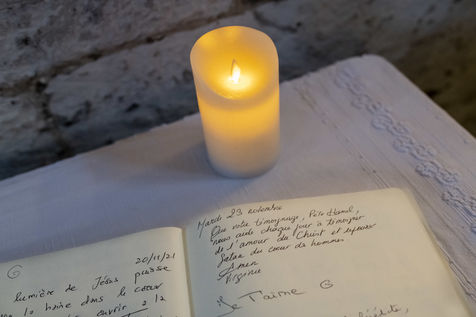 20/11/21
lumière de Jésus puisse
la haine dans le cœur
ouvrir à la
Mardi 23 novembre
Que votre témoignage, Père Hamel,
nous aide chaque jour à témoigner
de l'amour du Christ et repousser
Satan du cœur des hommes.
Amen
Virginie
Je t'aime